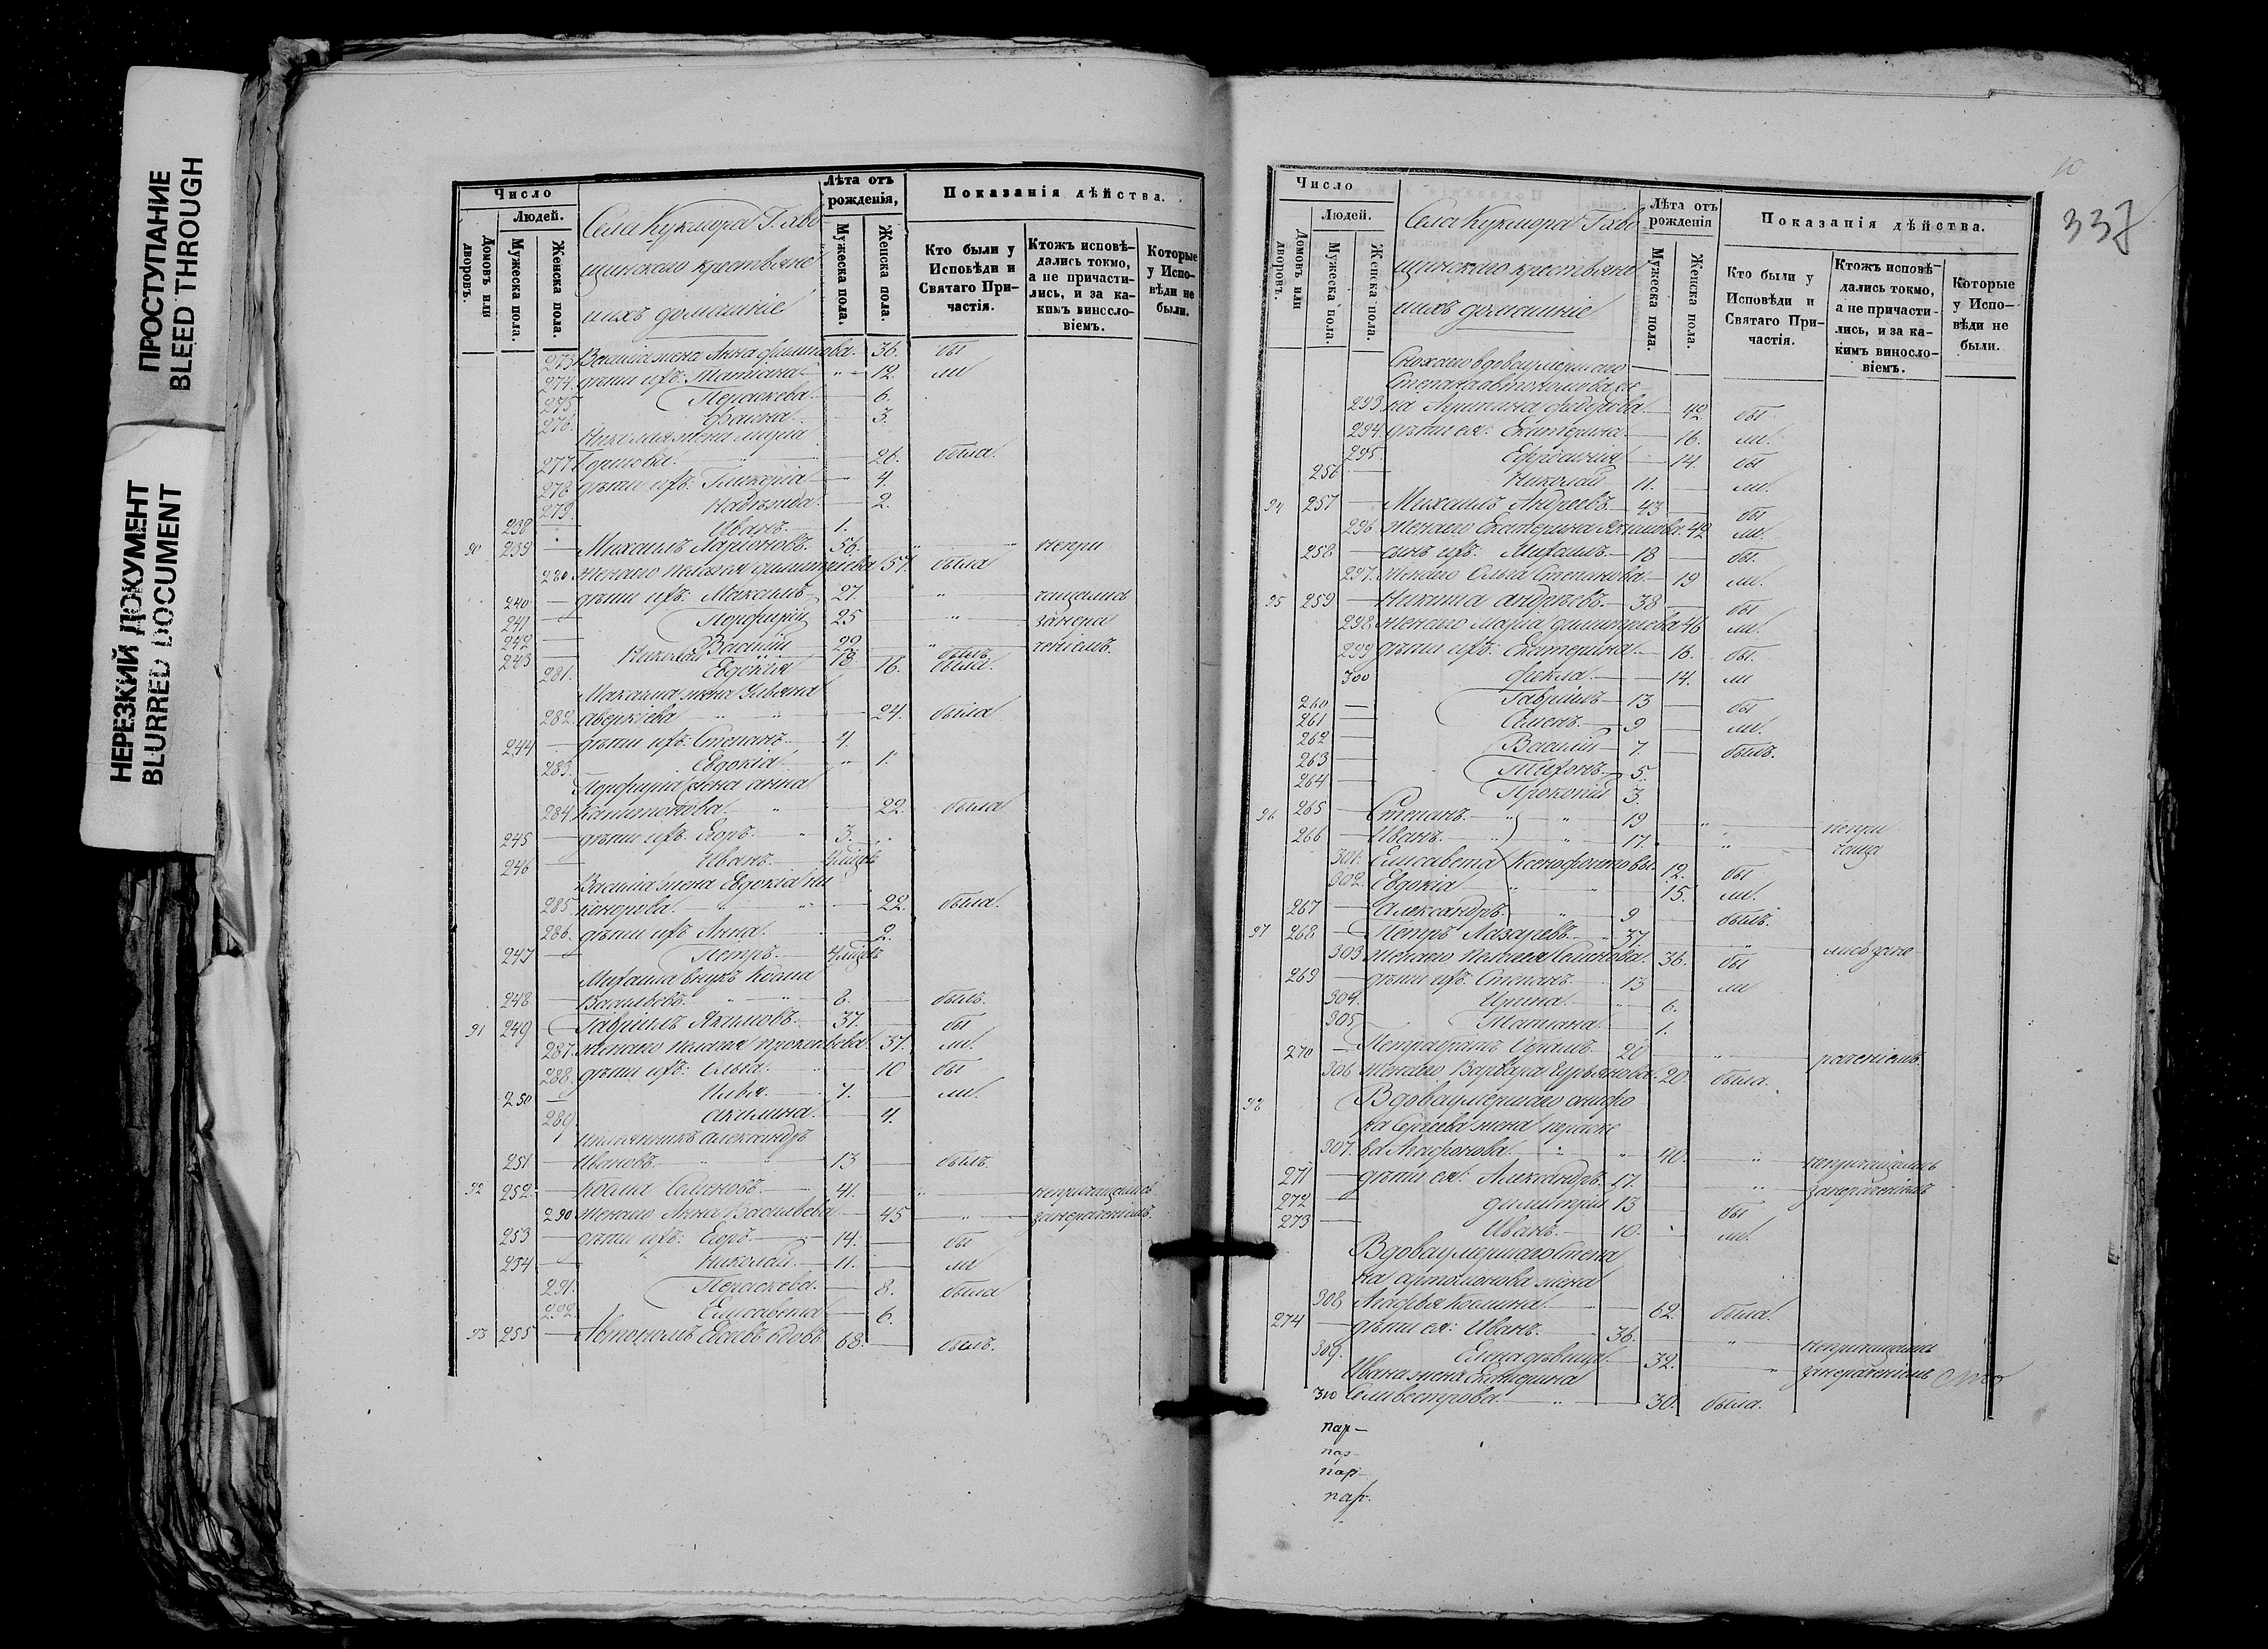 ПРОСТУПАНИЕ
BLEED THROUGH
НЕРЕЗКИЙ ДОКУМЕНТ
BLURRED DOCUMENT
Число
Людей.
Домовъ или дворовъ.
Мужеска пола.
Женска пола.
Села Кукмора Таво
щинскаго крестьяне
ихъ домашніе
Лѣта отъ рожденія,
Мужеска пола.
Женска пола.
Показанія дѣйства.
Кто были у Исповѣди и Святаго Причастія.
Ктожъ исповѣдались токмо, а не причастились, и за какимъ винословіемъ.
Которые у Исповѣди не были.
273 Василія жена Анна Филипова. 36. бы
274. дѣти ихъ: Татіана 12. ли
275 Пераскева. 6.
276. Фаина. 3.
Николая жена Марѳа
277 26. была.
278 дѣти ихъ: Гликерія 4.
279. Надѣжда. 2.
238 Иванъ. 1.
90 239 Михаилъ Ларіоновъ. 56. непри
280 жена его Пелагея Димитріева 57. была
240 дѣти ихъ: Максимъ 27. чащались
241 Порфирій 25 за нера
242 Василій 22 ченіемъ.
243 Николай 18 былъ
281. Евдокія 16. была.
Максима жена Ульяна
282. Аверкіева 24. была
244 дѣти ихъ: Степанъ 4.
283. Евдокія 1.
Порфирія жена Анна
284 22. была
245 дѣти ихъ: Егоръ 3.
246 Иванъ.
Василія жена Евдокія Ни
285. канорова. 22. была.
286. дѣти ихъ Анна. 2.
247 Петръ.
Михаила внукъ Козма
248 Васильевъ. 8. былъ.
91 249 Гавріилъ Якимовъ. 37. бы
287. жена его Пелагея Прокопьева 37. ли.
288. дѣти ихъ: Ольга 10 бы
250 Илья. 7. ли.
289 Акилина. 4.
племянникъ Александръ
251 Ивановъ. 13 былъ.
92 252. Козма Семеновъ. 41. непричащались
290 жена его Анна Васильева 45 за нераченіемъ.
253 дѣти ихъ: Егоръ. 14. бы
254 Николай. 11. ли
291. Пераскева. 8. была
292. Елисавета 6.
93 255 Автономъ вдовъ 68. былъ.
Число
Людей.
Домовъ или дворовъ.
Мужеска пола.
Женска пола.
Села Кукмора Таво
щинскаго крестьяне
ихъ домашніе
Лѣта отъ рожденія
Мужеска пола.
Женска пола.
Показанія дѣйства.
Кто были у Исповѣди и Святаго Причастія.
Ктожъ исповѣдались токмо, а не причастились, и за какимъ винословіемъ.
Которые у Исповѣди не были.
337
Сноха его вдова умершаго
Степана Автономова же
293 на Федорова 42 бы
294. дѣти ея: Екатерина. 16. ли.
295. Ефросинія 14. бы
256 Николай 11. ли.
94 257 Михаилъ Андреевъ. 43 бы
296 Жена его Екатерина Якимова. 42 ли.
258 сынъ ихъ: Михаилъ. 18 бы.
297. Жена его Ольга Степанова. 19 ли.
95 259 Никита Андреевъ. 38 бы
298. Жена его Марѳа Филиппова 46 ли.
299 дѣти ихъ: Екатерина. 16. бы.
300 Фекла. 14. ли
260 Гавріилъ 13 бы
261 Семенъ. 9 ли.
262 Василій 7. былъ.
263 Тихонъ. 5.
264 Прокопій 3.
96 265 Степанъ. 19 непри
266 Иванъ. 17. чаща
301. Елисавета Ксенофонтовы. 12. бы
302. Евдокія 15. ли.
267 Александръ. 9 былъ.
97 268 Петръ Лазаревъ. 37. лись за не
303 Жена его Пелагея 36. бы
269 дѣти ихъ: Степанъ. 13 ли
304. Ирина. 6.
305 Татіана 1.
270 Петра братъ 20 раченіемъ.
306 Жена его Варвара 20. была.
98 Вдова умершаго
Сергѣева жена Параске
307. ва Агафонова. 40. непричащались
271 дѣти ея: Александръ. 17. за нераченіемъ
272 Димитрій 13 бы
273 Иванъ. 10. ли.
Вдова умершаго Степа
на жена
308 Агафья Козмина. 62. была.
274 дѣти ея: Иванъ. 36. непричащались
309. Елена дѣвица 32. за нераченіемъ
Ивана жена Екатерина
310 Селивестрова. 30. была.
пар-
пар-
пар-
пар.